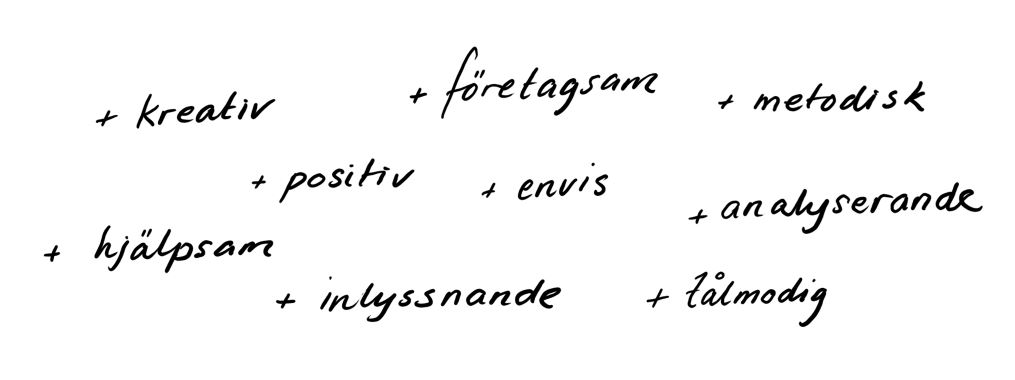 + kreativ
+ företagsam
+ metodisk
+ positiv
+ envis
+ analyserande
+ hjälpsam
+ inlyssnande
+ tålmodig